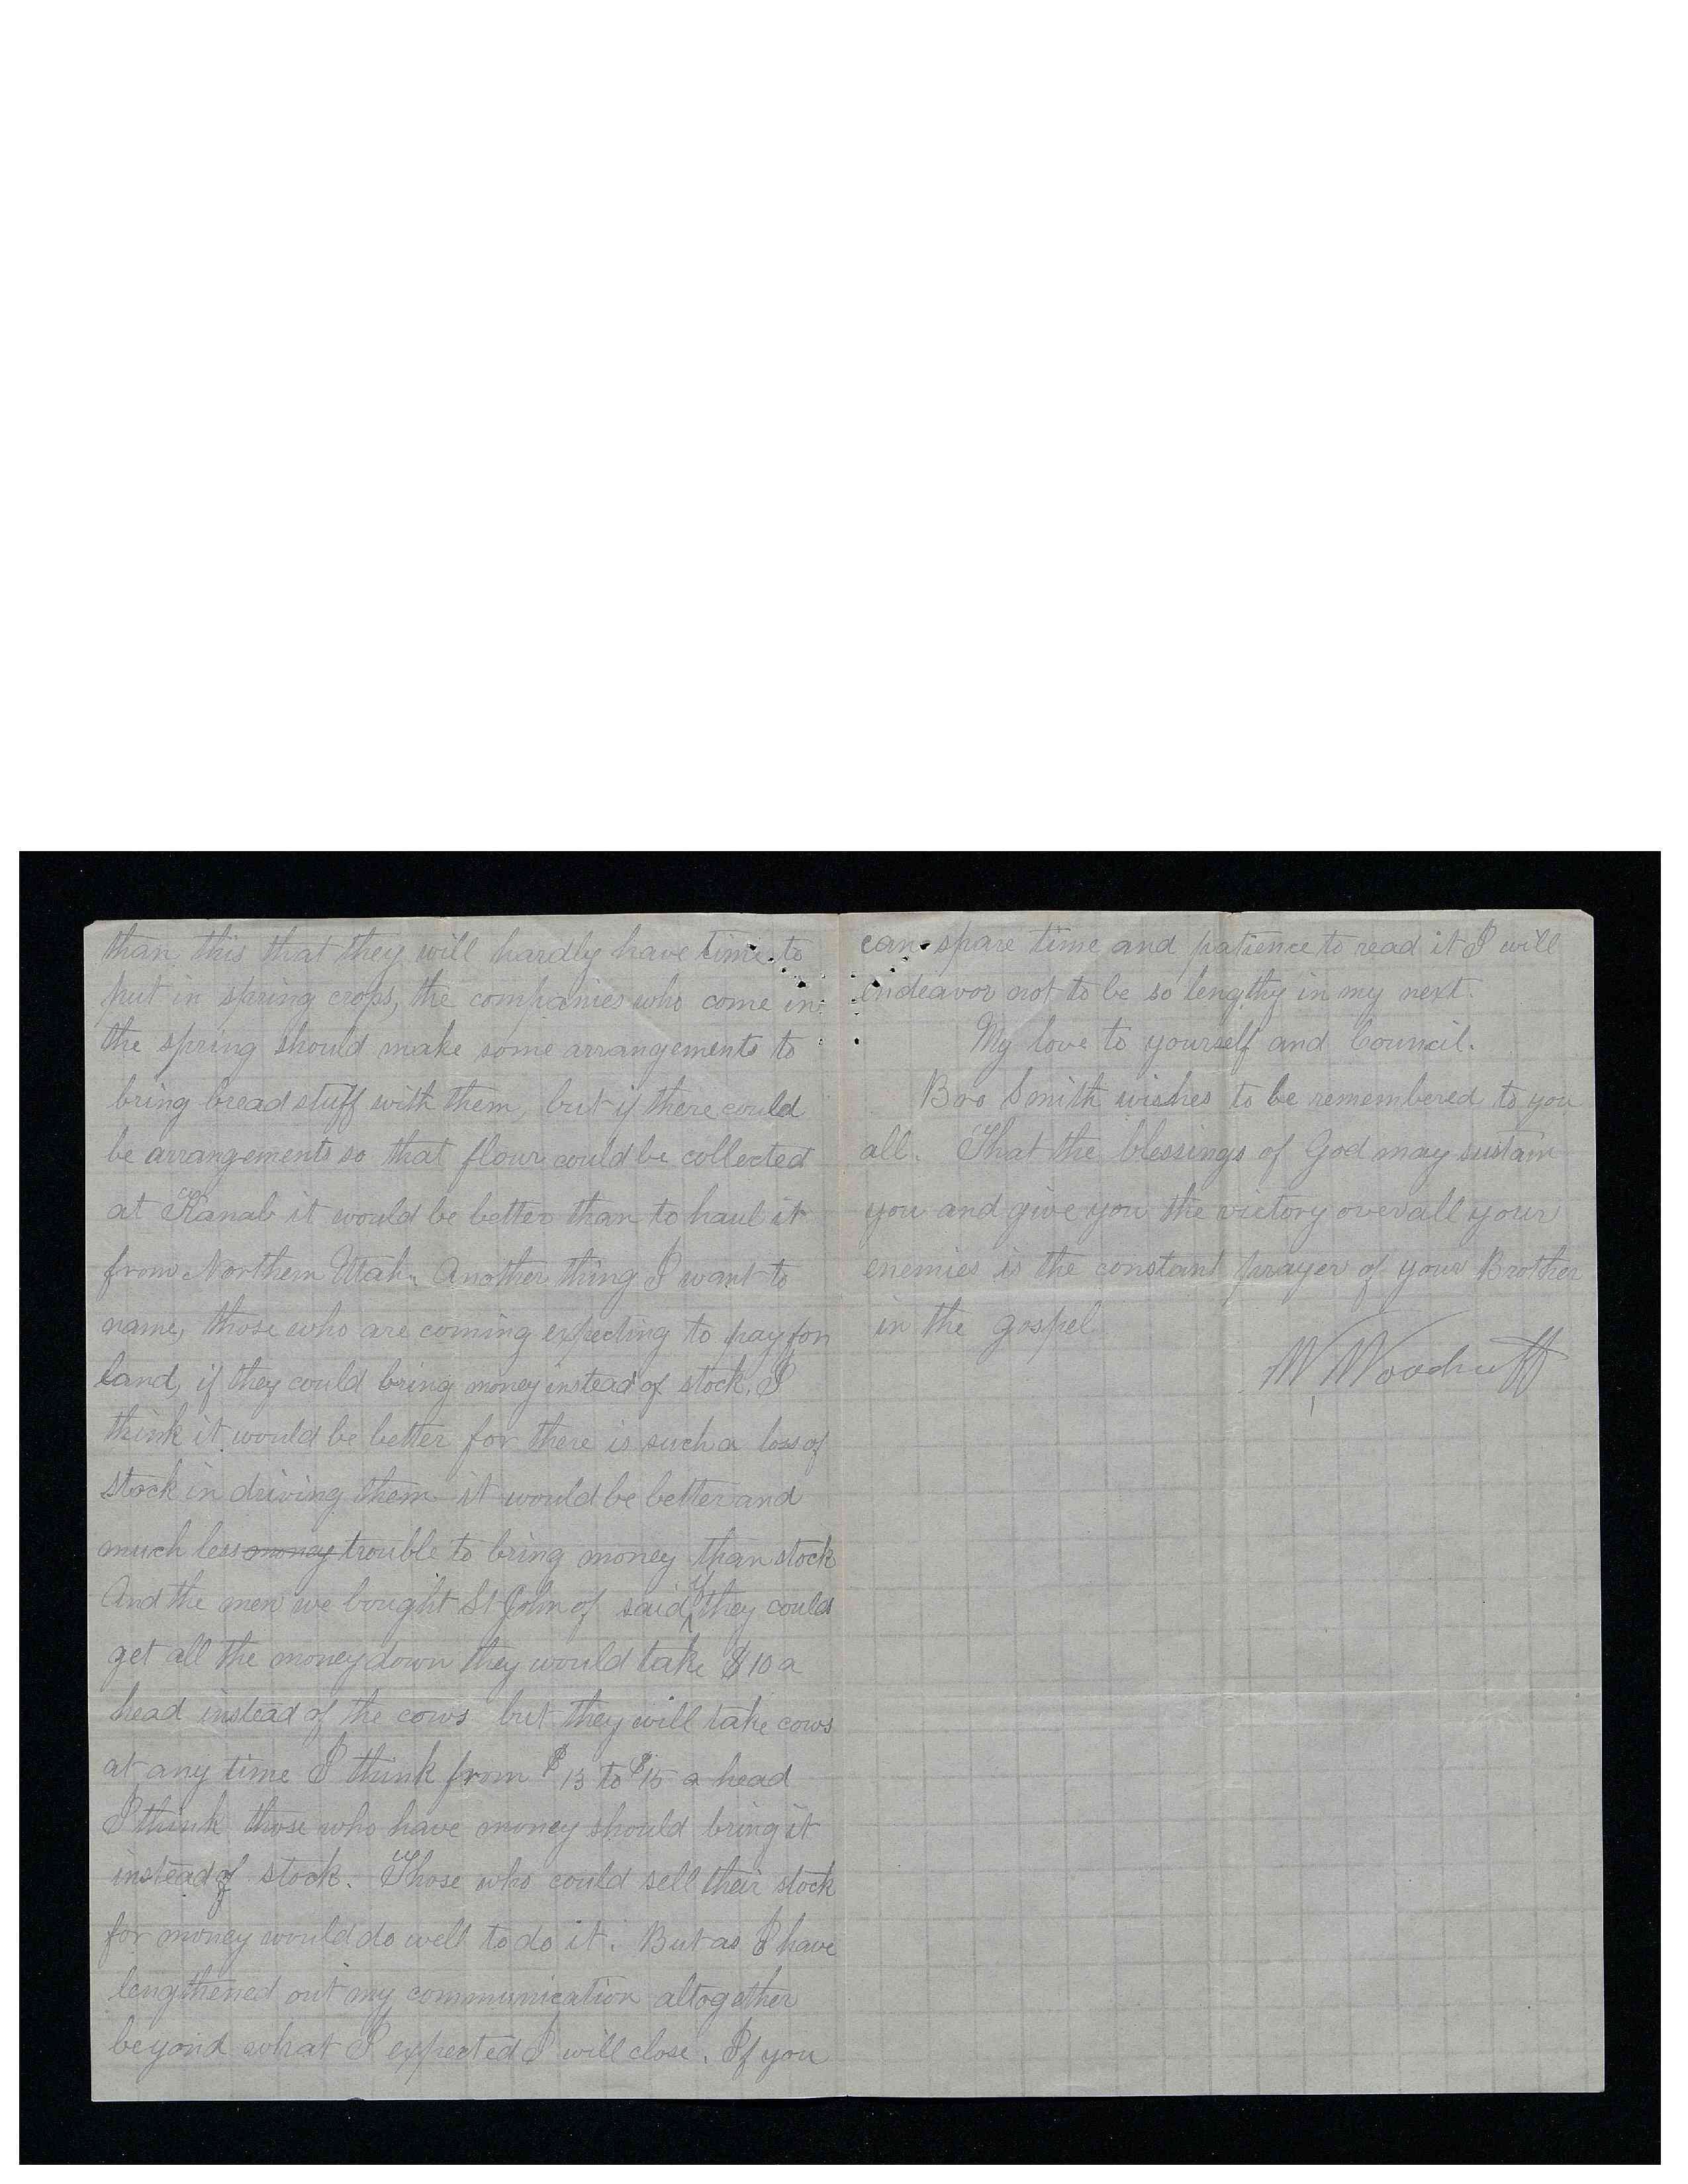 than this that they will hardly have time to
put in spring crops, the companies who come in
the spring should make some arrangements to
bring bread stuff with them, but if there could
be arrangements so that flour could be collected
at Kanab it would be better than to haul it
from Northern Utah. Another thing I want to
name, those who are coming expecting to pay for
land, if they could bring money instead of stock, I
think it would be better for there is such a loss of
stock in driving them it would be better and
much less money trouble to bring money than stock
And the men we bought St John of said if they could
get all the money down they would take $10 a
head instead of the cows but they will take cows
at any time I think from $13 to $15 a head
I think those who have money should bring it
instead of stock. Those who could sell their stock
for money would do well to do it. But as I have
lengthened out my communication altogether
beyond what I expected I will close. If you
can spare time and patience to read it I will
endeavor not to be so lengthy in my next.
My love to yourself and Council.
Bro Smith wishes to be remembered to you
all. That the blessings of God may sustain
you and give you the victory over all your
enemies is the constant prayer of your Brother
in the gospel
W. Woodruff